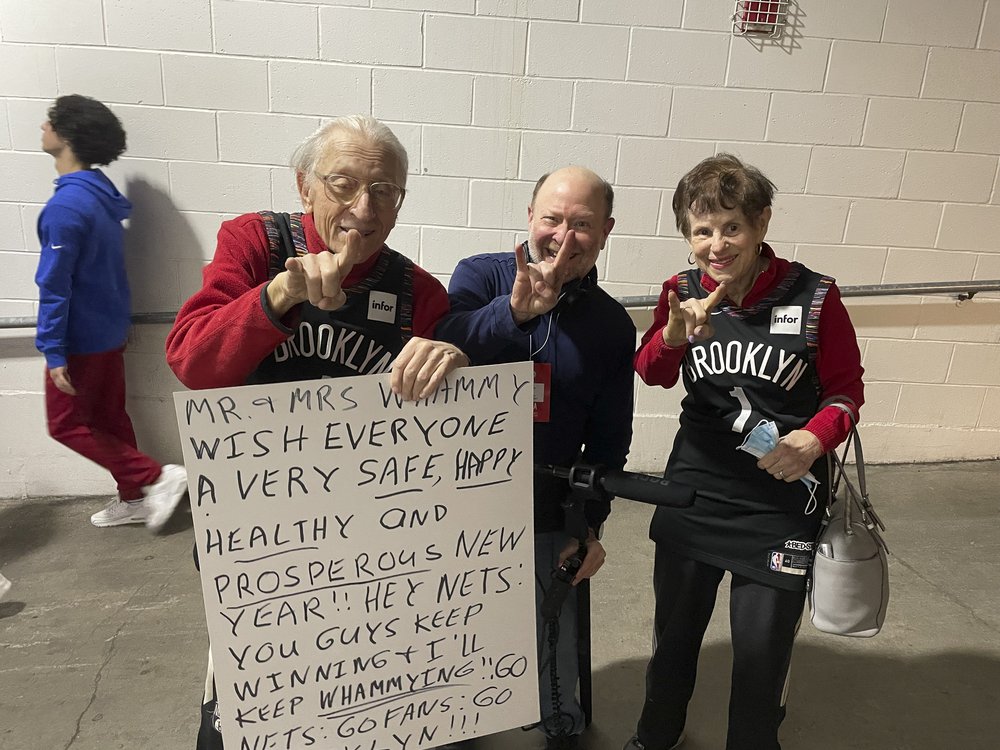 MR. & MRS WHAMMY
WISH EVERYONE
A VERY SAFE, HAPPY
HEALTHY AND
PROSPEROUS NEW
YEAR!! HEY NETS:
YOU GUYS KEEP
WINNING & I'LL
KEEP WHAMMYING!! GO
NETS: GO FANS: GO
KLYN!!!
infor
BROOKLYN
infor
BROOKLYN
1
NBA